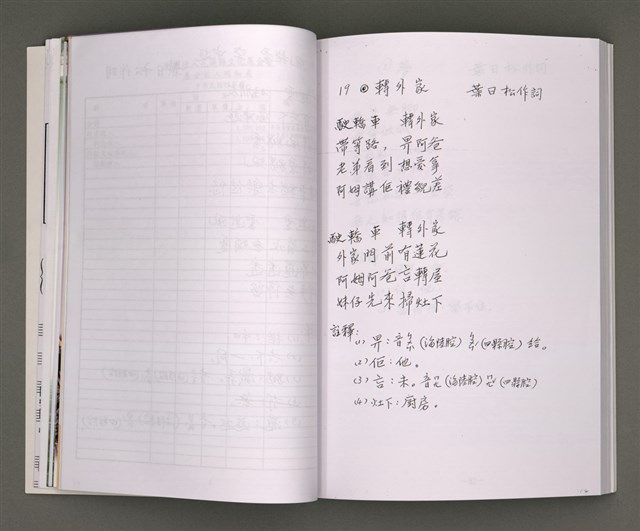 19 ◎ 轉外家 葉日松作詞
駛轎車 轉外家
帶等路，畀阿爸
老弟看到想愛拿
阿姆講佢禮貌差
駛轎車 轉外家
外家門前有蓮花
阿姆阿爸言轉屋
妹仔先來掃灶下
註釋：
(1) 畀：音 (海陸腔) (四縣腔) 給。
(2) 佢：他。
(3) 言：未。音 (海陸腔) (四縣腔)
(4) 灶下：廚房。